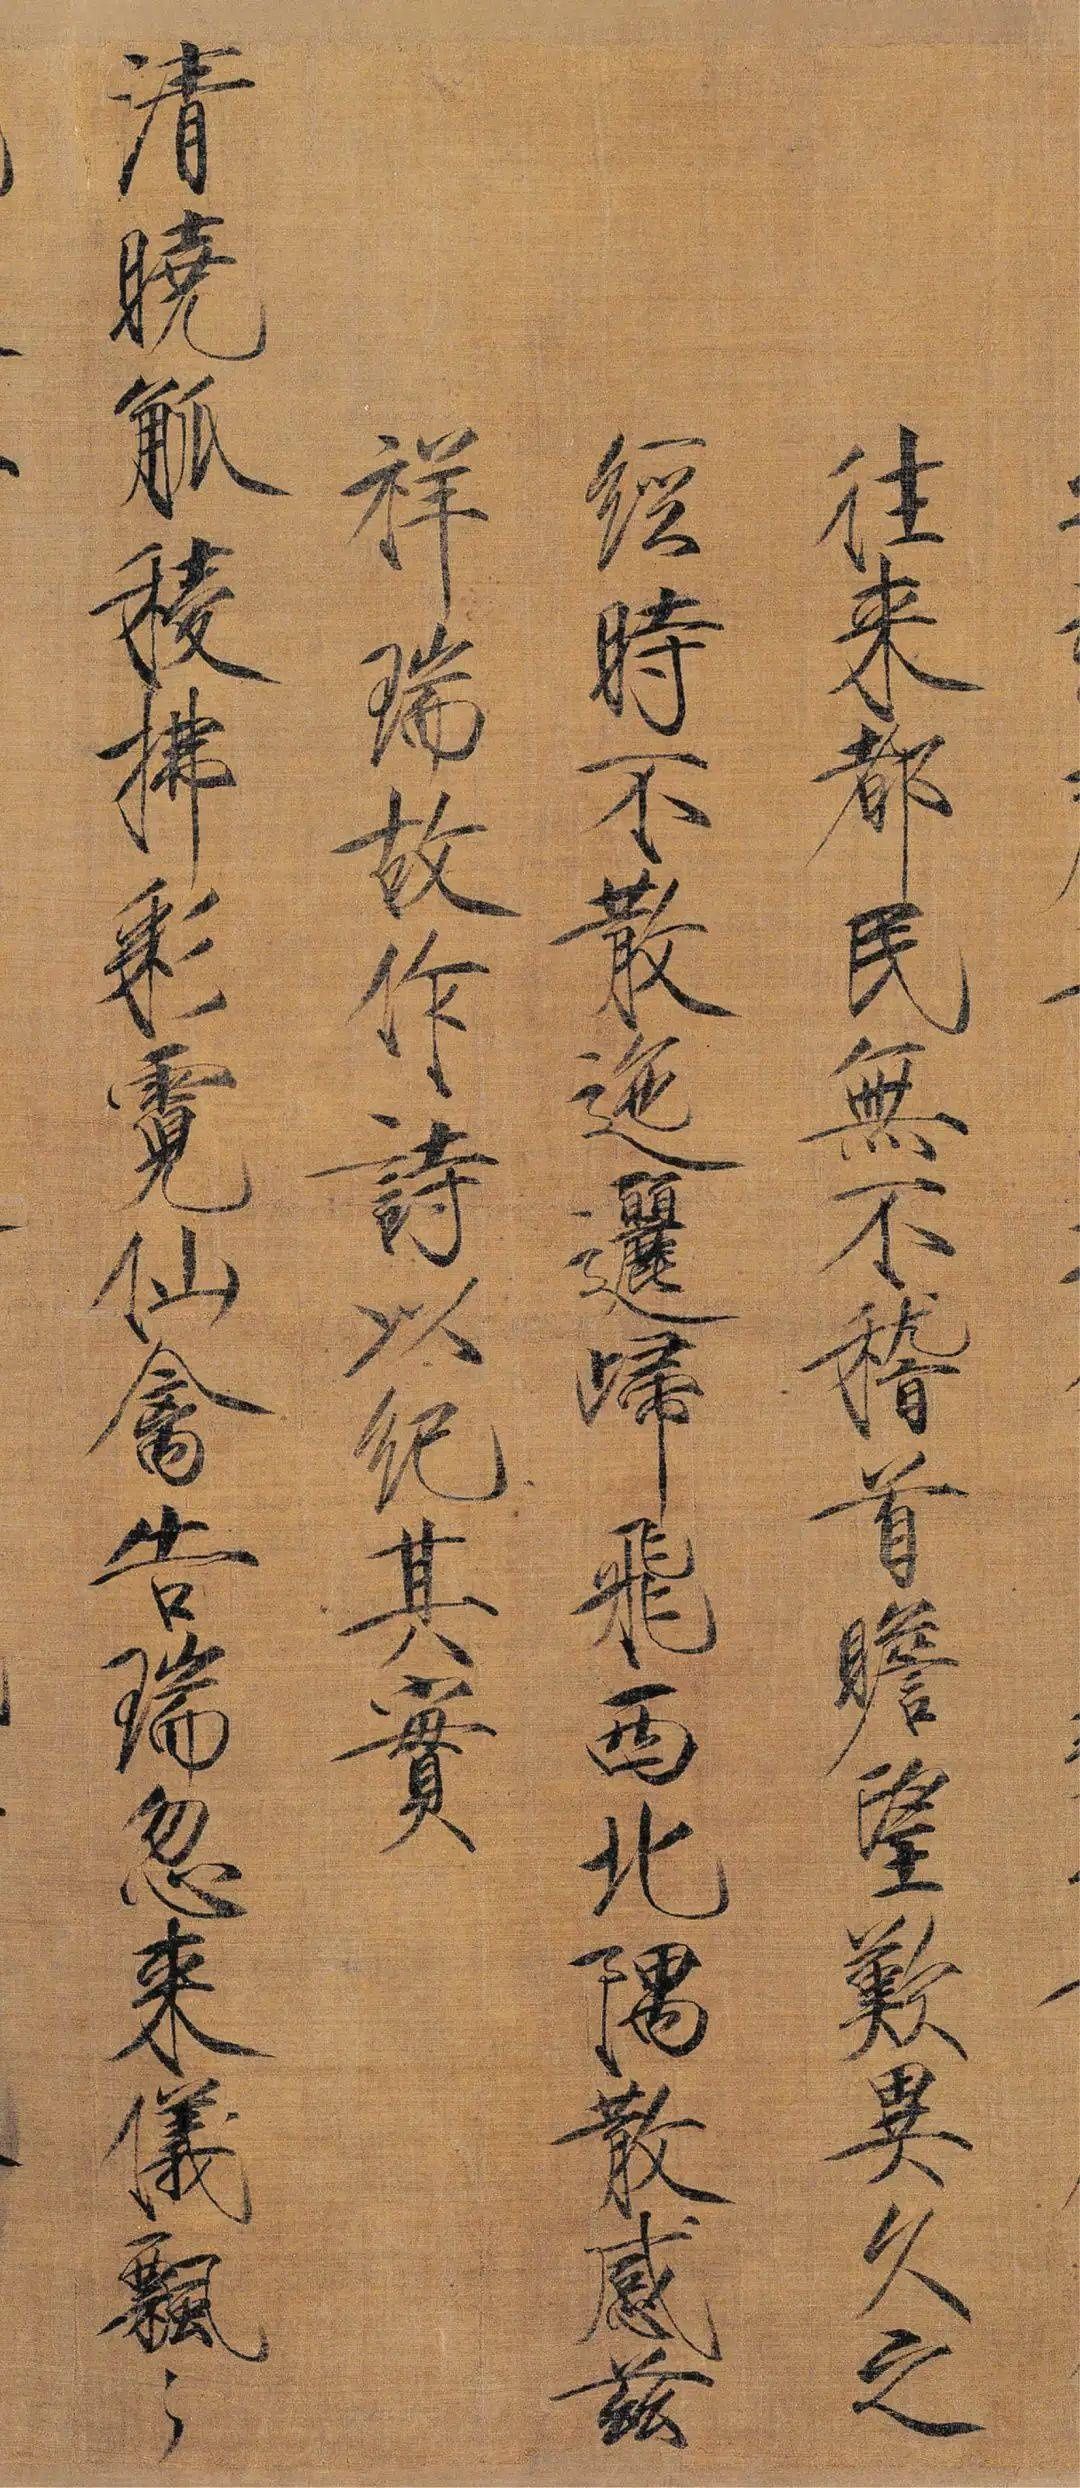 往来都民無不稽首瞻望歎異久之
經時不散迤邐歸飛西北隅散感茲
祥瑞故作詩以紀其實
清曉觚稜拂彩霓仙禽告瑞忽来儀飄々